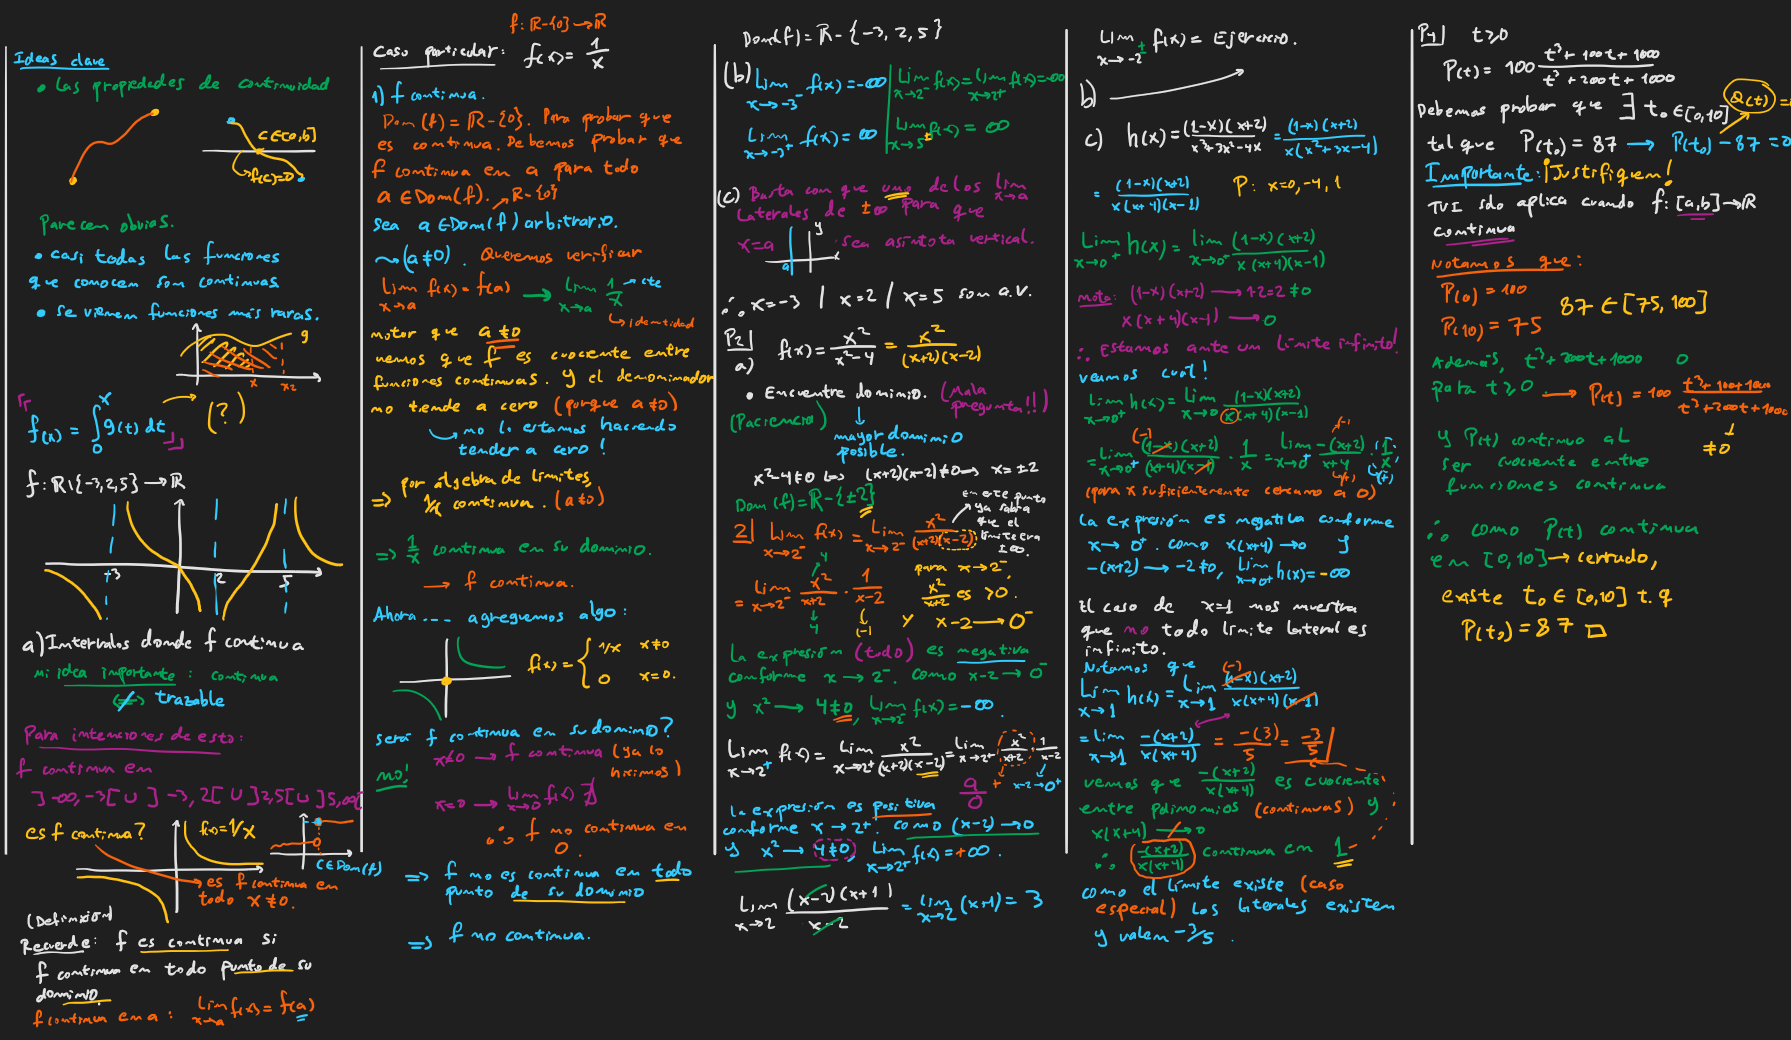 Ideas clave
• Las propiedades de continuidad
c ∈ [a,b]
f(c)=0
Parecen obvias.
• casi todas las funciones
que conocen son continuas
• se vienen funciones más raras.
g
x x₂
f(x) = ∫₀ˣ g(t) dt
(?)
f: ℝ\{-3,2,5} → ℝ
-3 2 5
a) Intervalos donde f continua
mi idea importante: continua
⇎ trazable
Para intenciones de esto:
f continua en
]-∞,-3[ ∪ ]-3,2[ ∪ ]2,5[ ∪ ]5,∞[
es f continua?
f(x)=1/x
C∈Dom(f)
→ es f continua en
todo x≠0.
(Definición)
Recuerde: f es continua si
f continua en todo punto de su
dominio.
f continua en a: lim x→a f(x) = f(a)
f: ℝ-{0} → ℝ
Caso particular: f(x) = 1/x
1) f continua.
Dom(f) = ℝ-{0}. Para probar que
es continua. Debemos probar que
f continua en a para todo
a ∈ Dom(f). → ℝ-{0}
Sea a ∈ Dom(f) arbitrario.
⇝ (a≠0). Queremos verificar
lim x→a f(x) = f(a) → lim x→a 1/x → cte
↳ identidad
notar que a≠0
vemos que f es cuociente entre
funciones continuas. Y el denominador
no tiende a cero (porque a≠0)
↳ no lo estamos haciendo
tender a cero!
⇒ por álgebra de límites,
1/x continua. (a≠0)
⇒ 1/x continua en su dominio.
→ f continua.
Ahora... agreguemos algo:
f(x) = { 1/x x≠0
0 x=0.
será f continua en su dominio?
no! x≠0 → f continua (ya lo
hicimos)
x=0 → lim x→0 f(x) ∄
∴ f no continua en
0.
⇒ f no es continua en todo
punto de su dominio
⇒ f no continua.
Dom(f) = ℝ-{-3,2,5}
(b) lim x→-3⁻ f(x) = -∞
lim x→2⁻ f(x) = lim x→2⁺ f(x) = -∞
lim x→-3⁺ f(x) = ∞
lim x→5± f(x) = ∞
(c) Basta con que uno de los lim x→a
laterales de ±∞ para que
x=a sea asíntota vertical.
y
x
a
∴ x=-3 / x=2 / x=5 son a.v.
P2|
a) f(x) = x²/(x²-4) = x²/((x+2)(x-2))
• Encuentre dominio. (Mala
pregunta!!)
(Paciencia)
↓
mayor dominio
posible.
x²-4≠0 ↔ (x+2)(x-2)≠0 → x=±2
Dom(f) = ℝ-{±2}
en este punto
ya sabía
que el
límite era
±∞.
2| lim x→2⁻ f(x) = lim x→2⁻ x²/((x+2)(x-2))
= lim x→2⁻ x²/(x+2) · 1/(x-2)
4
4
(-)
para x→2⁻,
x²/(x+2) es >0.
y x-2 → 0⁻
La expresión (todo) es negativa
conforme x→2⁻. Como x-2→0⁻
y x² → 4≠0, lim x→2⁻ f(x) = -∞.
lim x→2⁺ f(x) = lim x→2⁺ x²/((x+2)(x-2)) = lim x→2⁺ x²/(x+2) · 1/(x-2)
a/0 + x-2→0⁺
La expresión es positiva
conforme x→2⁺. como (x-2)→0
y x² → 4≠0, lim x→2⁺ f(x) = +∞.
lim x→2 (x-2)(x+1)/(x-2) = lim x→2 (x+1) = 3
lim x→-2± f(x) = Ejercicio.
b)
c) h(x) = (1-x)(x+2)/(x³+3x²-4x) = (1-x)(x+2)/(x(x²+3x-4))
= (1-x)(x+2)/(x(x+4)(x-1)) P: x=0,-4,1
lim x→0⁺ h(x) = lim x→0⁺ (1-x)(x+2)/(x(x+4)(x-1))
nota: (1-x)(x+2) → 1·2=2≠0
x(x+4)(x-1) → 0
∴ Estamos ante un límite infinito!
veamos cual!
lim x→0⁺ h(x) = lim x→0 (1-x)(x+2)/(x(x+4)(x-1))
(-1)
= lim x→0⁺ (1-x)(x+2)/((x+4)(x-1)) · 1/x = lim x→0⁺ -(x+2)/(x+4) · 1/x
(-)
(+) (+)
(para x suficientemente cercano a 0)
La expresión es negativa conforme
x→0⁺. como x(x+4)→0 y
-(x+2) → -2≠0, lim x→0⁺ h(x) = -∞
El caso de x=1 nos muestra
que no todo límite lateral es
infinito.
Notamos que
(-1)
lim x→1 h(x) = lim x→1 (1-x)(x+2)/(x(x+4)(x-1))
= lim x→1 -(x+2)/(x(x+4)) = -(3)/5 = -3/5
vemos que -(x+2)/(x(x+4)) es cuociente
entre polinomios (continuas) y
x(x+4) ↛ 0
∴ -(x+2)/(x(x+4)) continua en 1
como el límite existe (caso
especial) los laterales existen
y valen -3/5.
P4| t≥0
P(t) = 100 (t³+100t+1000)/(t³+200t+1000)
Debemos probar que ∃ t₀∈[0,10] Q(t) =
tal que P(t₀) = 87 → P(t₀)-87=0
Importante: ¡Justifiquen!
TVI sólo aplica cuando f: [a,b]→ℝ
continua
Notamos que:
P(0) = 100
87 ∈ [75,100]
P(10) = 75
Además, t³+200t+1000 0
para t≥0 → P(t) = 100 (t³+100t+1000)/(t³+200t+1000)
↓
≠0
y P(t) continua al
ser cuociente entre
funciones continua
∴ como P(t) continua
en [0,10] → cerrado,
existe t₀ ∈ [0,10] t.q
P(t₀) = 87 □